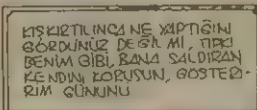 KIŞKIRTILINCA NE YAPTIĞINI
GÖRDÜNÜZ DEĞİL Mİ, TIPKI
BENİM GİBİ, BANA SALDIRAN
KENDİNİ KORUSUN, GÖSTERİ-
RİM GÜNÜNÜ